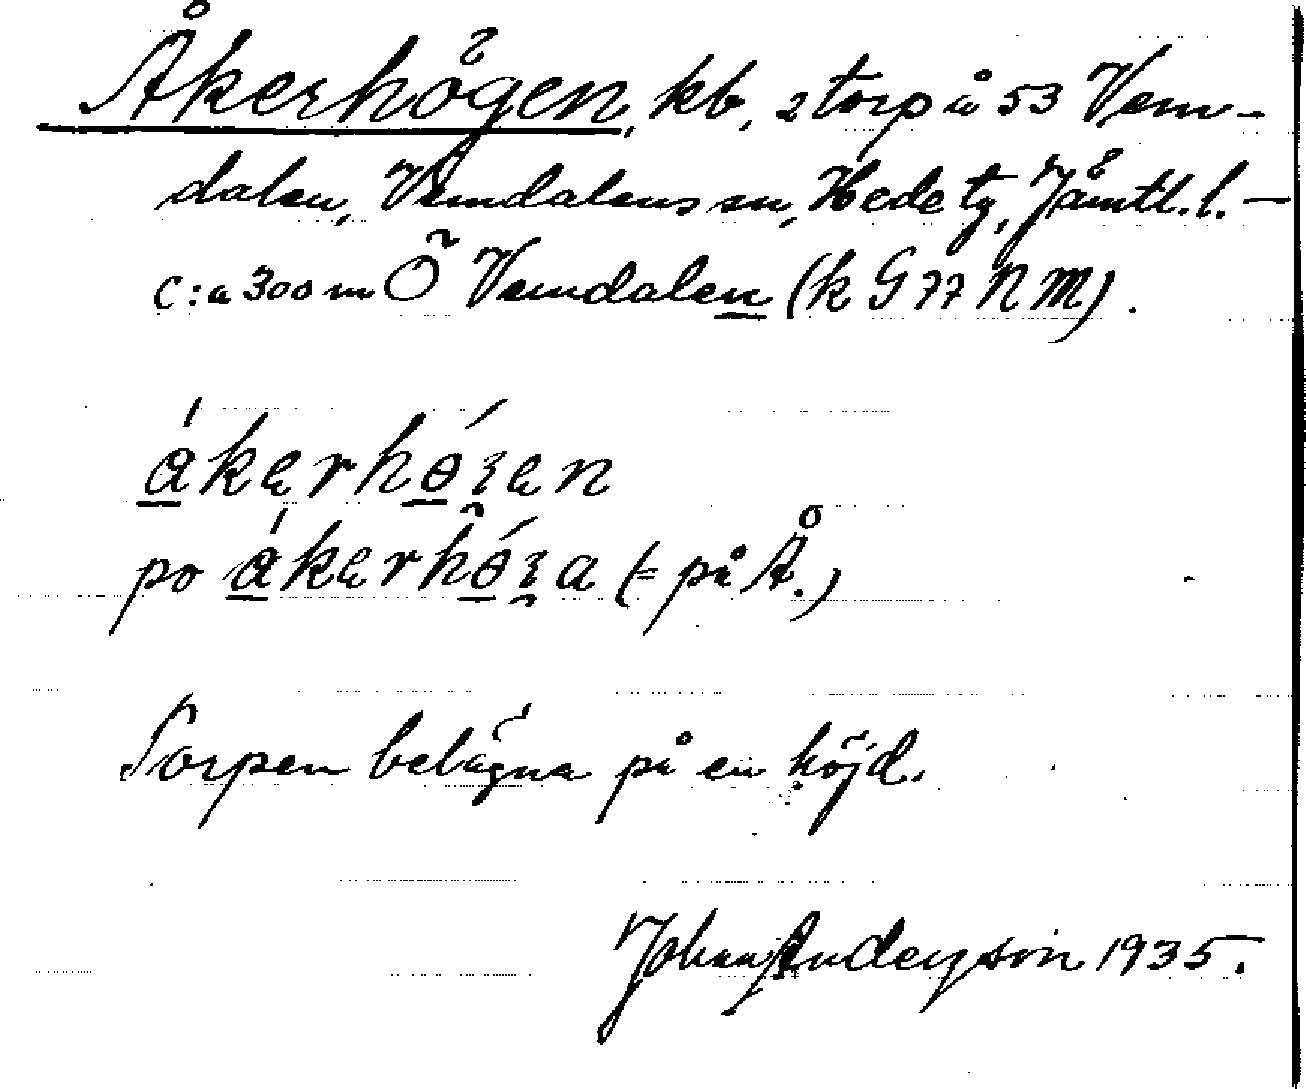 Åkerhögen, kb, 2 torp å 53 Vem-
dalen, Vemdalens sn, Hede tg, Jämtl. l. –
c:a 300 m Ö Vemdalen (k G 77 N M).
åkerhöʒen
po åkerhöʒa (= på Å.)
Torpen belägna på en höjd.
Johan Anderson 1935.